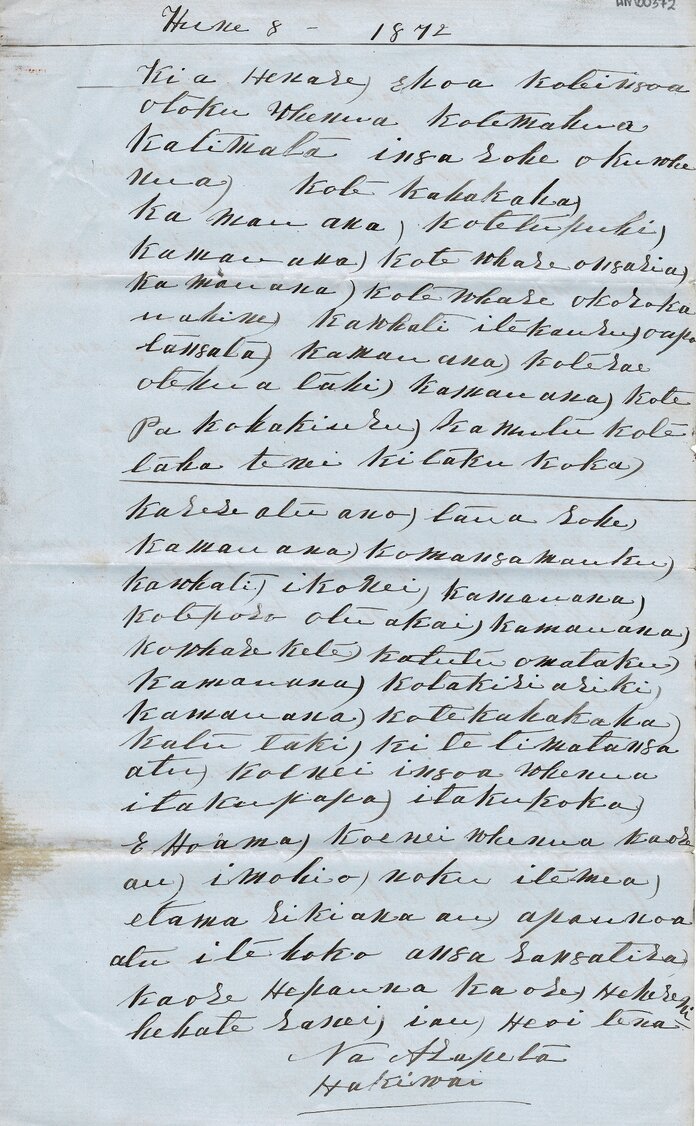 Hune 8 - 1872
Kia Henare) Ehoa koteingoa
otoku Whenua kotemahua
Katimata inga rohe okuwhe
nua) kote kahakaha)
ka mau ana) kotetupuhi)
kamauana) kote whare ongaria)
ka mauana) kote whare okoroka
uahine) kawhati itekauru)
tangata) kamau ana) koterae
otehu a tahi) kamauana) kote
Pa kohakiuru) kamutu kote
taha tenei kitaku koka)
karere atu ano) taua rohe)
kamau ana) komangamauku)
kawhati) ikonei) kamauana)
koteporo otu akai) kamauana)
kowhare kete) katutu omataku)
kamauana) kotakiri ariki)
kamauana) kotekahakaha)
katu taki) ki te timatanga
atu) koenei ingoa whenua
itakupapa) itakukoka)
E Hoama) koenei whenua kaore
au) imohio) noku itemea)
etama rikiana au) apaunoa
atu itehoko anga rangatira)
kaore Hepauna kaore) Hehereni
hekate ranei) iau) Heoi tena
Na Arapeta
Hakiwai